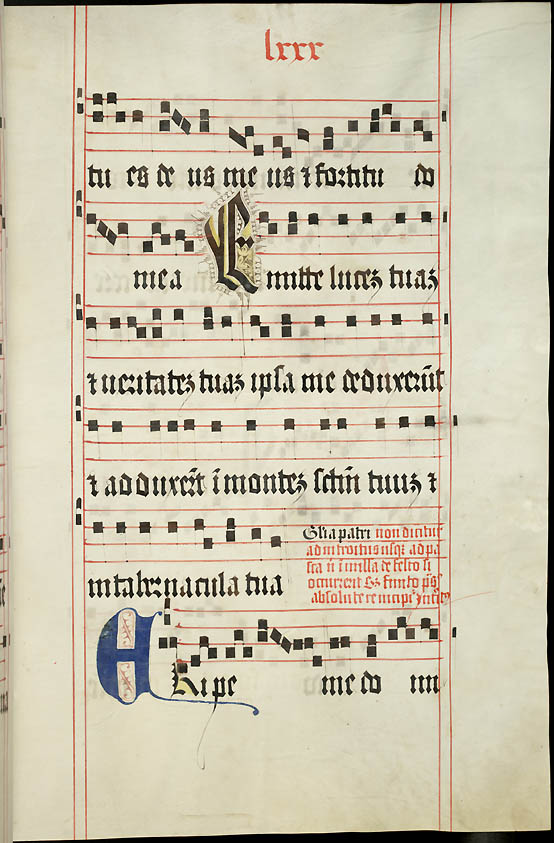 lxxx
tu es de us me us ⁊ fortitu do
mea Emitte luceꝫ tuaꝫ
⁊ ueritateꝫ tuaꝫ ipsa me deduxerūt
⁊ adduxerūt ī monteꝫ sctm̄ tuuꝫ ⁊
in tabernacula tua
Gl̄ia patri non dicitur
ad introitus usqꝫ ad pa
sca nisi in missa de festo si
occurrerit sꝫ finito ps̄
absolute reincipit̄ introit9
Eripe me do mi